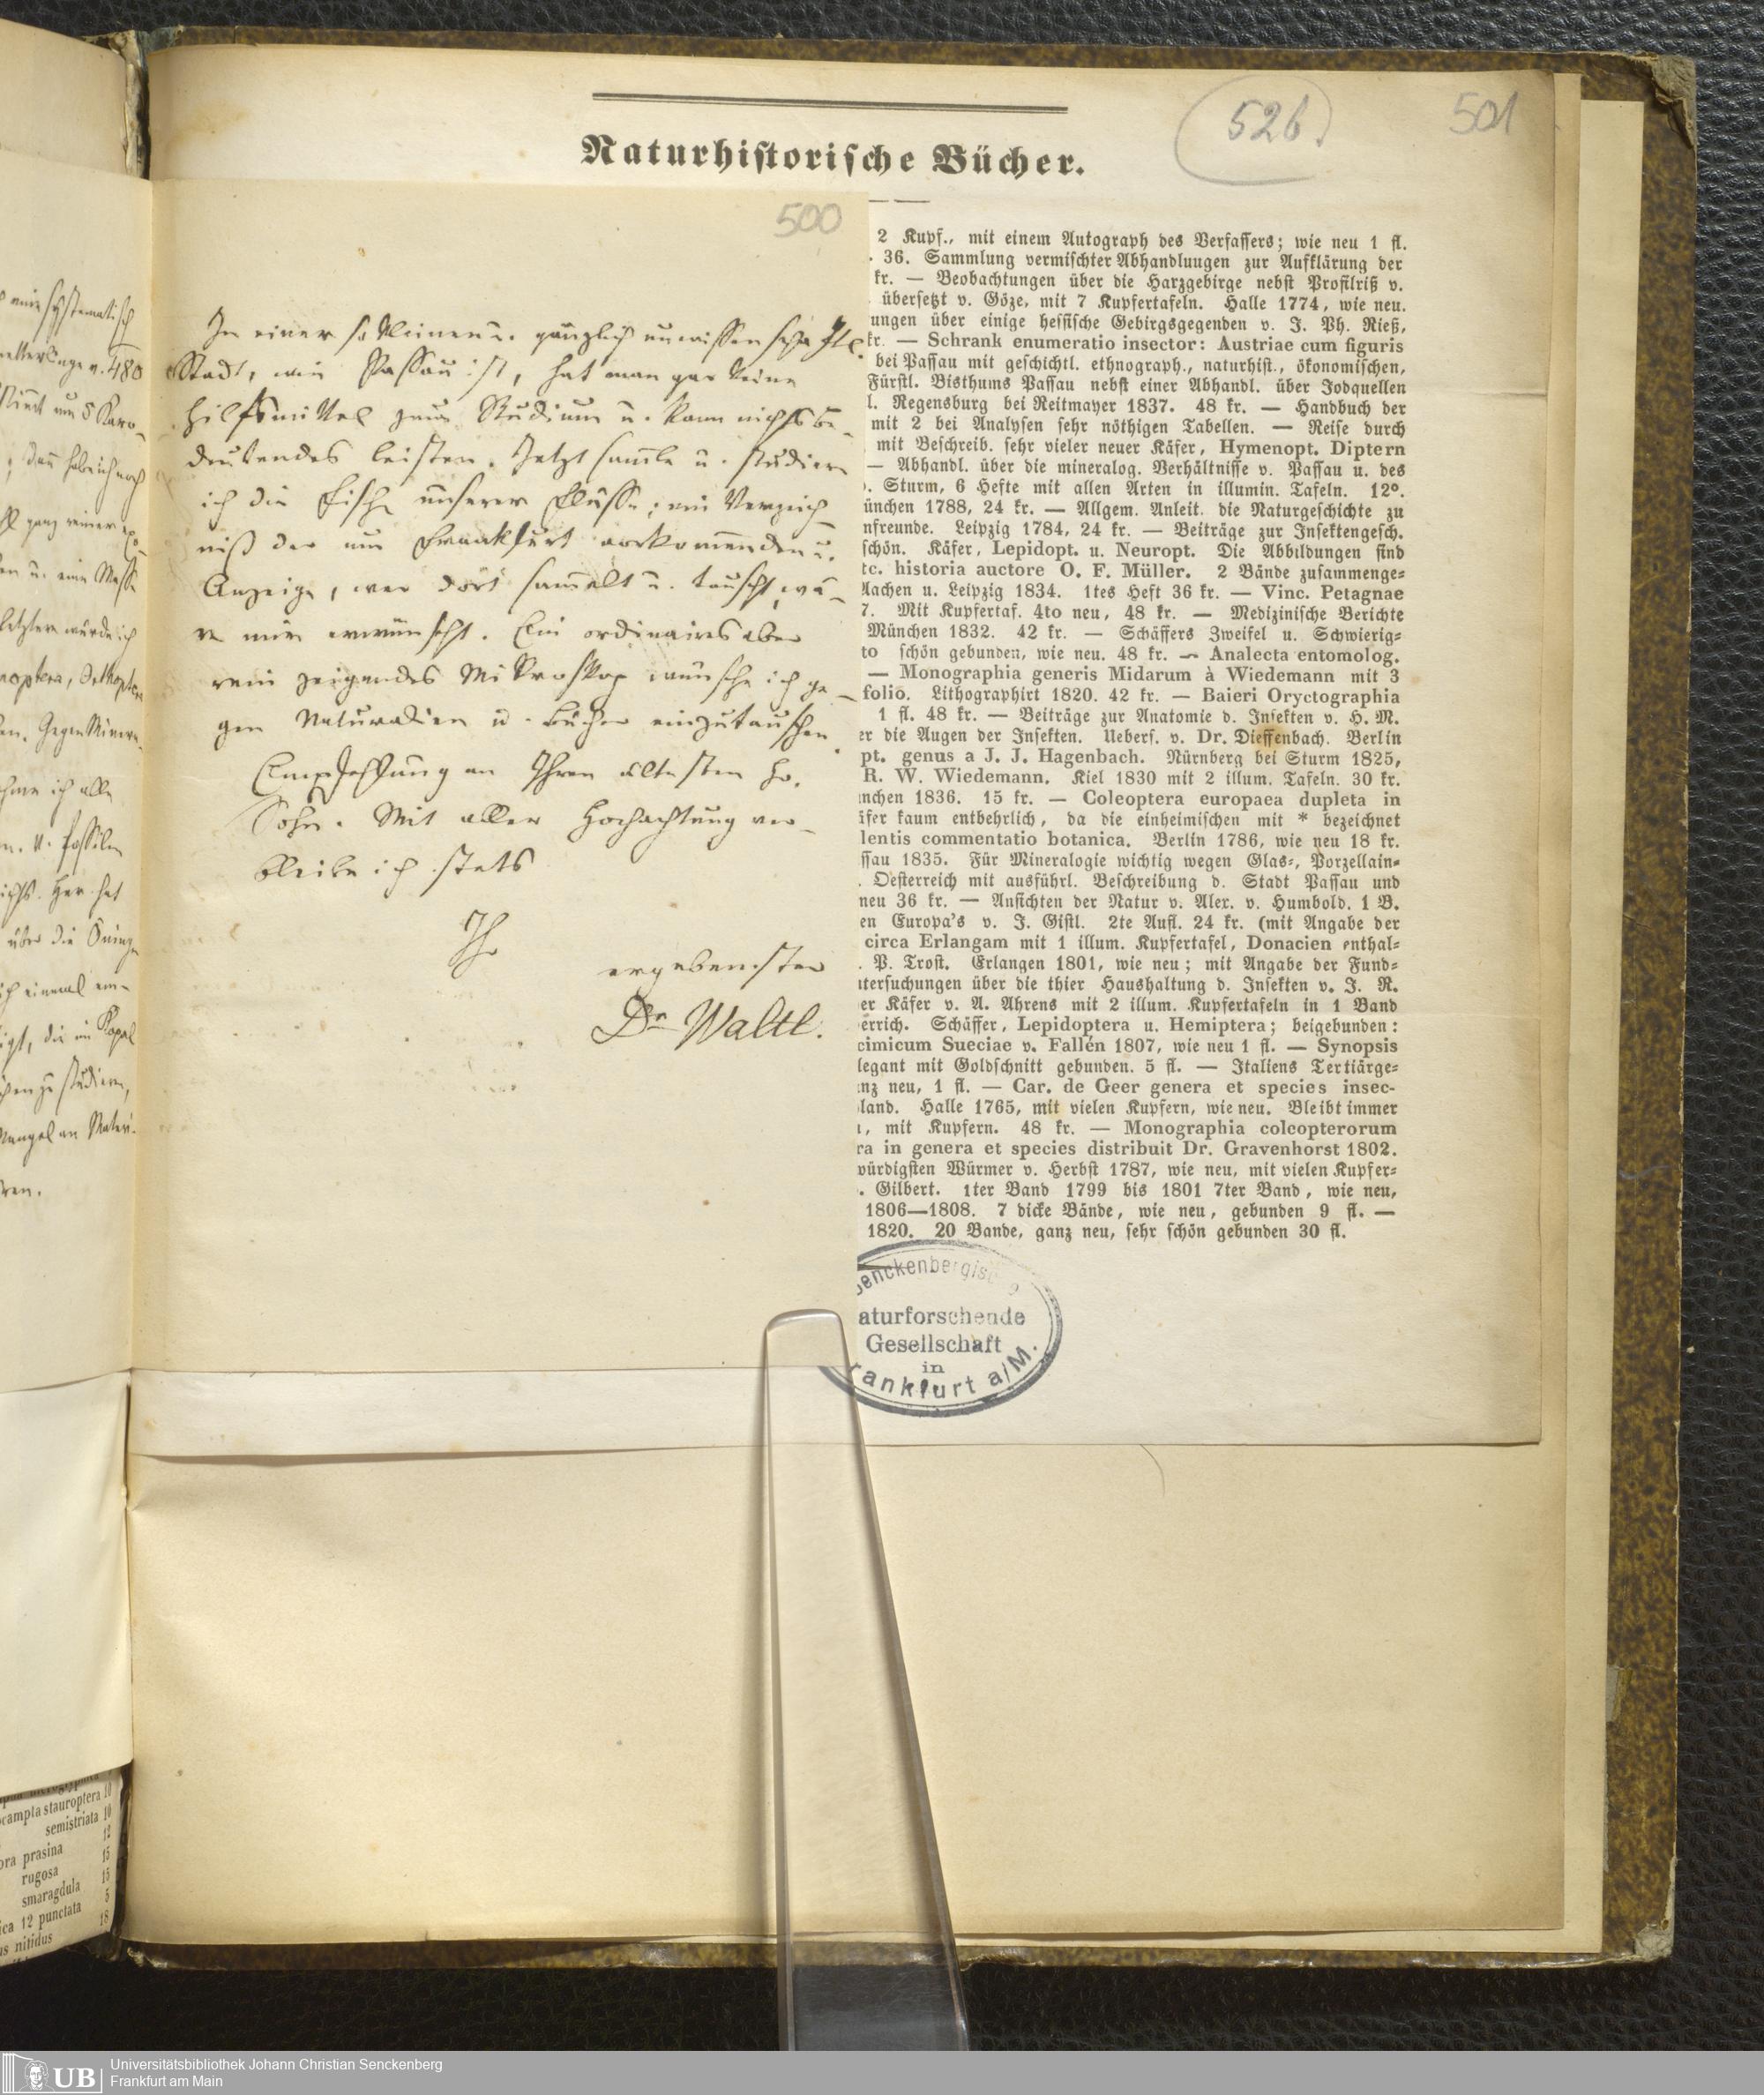 Naturhistorische Bücher.
526
501
500
systematisch
480
5 Karo-
dann habe ich noch
ganz reiner
u. eine Masse
letztere würde ich
noptera, Orthoptera
Gegen Minera-
ich alle
u. fossilen
Her hat
über die
ich einmal
die im Kopal
zu studieren,
Mangel an Materi-
ren.
In einer so kleinen u. gänzlich unwissenschaftl.
Stadt, wie Passau ist, hat man gar keine
Hilfsmittel zum Studium u. kann nichts be-
deutendes leisten. Jetzt samle u. studiere
ich die Fische unserer Flüsse; ein Verzeich-
niß der um Frankfurt vorkommenden u.
Anzeige, wer dort samelt u. tauscht, wä-
re mir erwünscht. Ein ordinaires aber
rein zeigendes Mikroskop wünsche ich ge-
gen Naturalien u. Bücher einzutauschen.
Empfehlung an Ihren ältesten H.
Sohn. Mit aller Hochachtung ver-
bleibe ich stets
Ihr
ergebenster
Dr Waltl.
2 Kupf., mit einem Autograph des Verfassers; wie neu 1 fl.
. 36. Sammlung vermischter Abhandluugen zur Aufklärung der
kr. — Beobachtungen über die Harzgebirge nebst Profilriß v.
übersetzt v. Göze, mit 7 Kupfertafeln. Halle 1774, wie neu.
ungen über einige hessische Gebirgsgegenden v. J. Ph. Rieß,
kr. — Schrank enumeratio insector: Austriae cum figuris
bei Passau mit geschichtl. ethnograph., naturhist., ökonomischen,
Fürstl. Bisthums Passau nebst einer Abhandl. über Jodquellen
l. Regensburg bei Reitmayer 1837. 48 kr. — Handbuch der
mit 2 bei Analysen sehr nöthigen Tabellen. — Reise durch
mit Beschreib. sehr vieler neuer Käfer, Hymenopt. Diptern
— Abhandl. über die mineralog. Verhältnisse v. Passau u. des
. Sturm, 6 Hefte mit allen Arten in illumin. Tafeln. 12°.
ünchen 1788, 24 kr. — Allgem. Anleit. die Naturgeschichte zu
nfreunde. Leipzig 1784, 24 kr. — Beiträge zur Insektengesch.
schön. Käfer, Lepidopt. u. Neuropt. Die Abbildungen sind
tc. historia auctore O. F. Müller. 2 Bände zusammenge-
Aachen u. Leipzig 1834. 1tes Heft 36 kr. — Vinc. Petagnae
7. Mit Kupfertaf. 4to neu, 48 kr. — Medizinische Berichte
München 1832. 42 kr. — Schäffers Zweifel u. Schwierig-
to schön gebunden, wie neu. 48 kr. — Analecta entomolog.
— Monographia generis Midarum à Wiedemann mit 3
folio. Lithographirt 1820. 42 kr. — Baieri Oryctographia
1 fl. 48 kr. — Beiträge zur Anatomie d. Insekten v. H. M.
er die Augen der Insekten. Uebers. v. Dr. Dieffenbach. Berlin
pt. genus a J. J. Hagenbach. Nürnberg bei Sturm 1825,
R. W. Wiedemann. Kiel 1830 mit 2 illum. Tafeln. 30 kr.
nchen 1836. 15 kr. — Coleoptera europaea dupleta in
äfer kaum entbehrlich, da die einheimischen mit * bezeichnet
lentis commentatio botanica. Berlin 1786, wie neu 18 kr.
ssau 1835. Für Mineralogie wichtig wegen Glas-, Porzellain-
. Oesterreich mit ausführl. Beschreibung d. Stadt Passau und
neu 36 kr. — Ansichten der Natur v. Alex. v. Humbold. 1 B.
en Europa's v. J. Gistl. 2te Aufl. 24 kr. (mit Angabe der
circa Erlangam mit 1 illum. Kupfertafel, Donacien enthal-
. P. Trost. Erlangen 1801, wie neu; mit Angabe der Fund-
ntersuchungen über die thier Haushaltung d. Insekten v. J. R.
er Käfer v. A. Ahrens mit 2 illum. Kupfertafeln in 1 Band
errich. Schäffer, Lepidoptera u. Hemiptera; beigebunden:
cimicum Sueciae v. Fallén 1807, wie neu 1 fl. — Synopsis
legant mit Goldschnitt gebunden. 5 fl. — Italiens Tertiärge-
nz neu, 1 fl. — Car. de Geer genera et species insec-
land. Halle 1765, mit vielen Kupfern, wie neu. Bleibt immer
, mit Kupfern. 48 kr. — Monographia colcopterorum
ra in genera et species distribuit Dr. Gravenhorst 1802.
würdigsten Würmer v. Herbst 1787, wie neu, mit vielen Kupfer-
. Gilbert. 1ter Band 1799 bis 1801 7ter Band, wie neu,
1806—1808. 7 dicke Bände, wie neu, gebunden 9 fl. —
1820. 20 Bande, ganz neu, sehr schön gebunden 30 fl.
Senckenbergische
aturforschende
Gesellschaft
in
rankfurt a/M.
campta stauroptera 10
semistriata 10
12
ora prasina 15
rugosa 15
smaragdula 5
ica 12 punctata 18
us nitidus
UB
Universitätsbibliothek Johann Christian Senckenberg
Frankfurt am Main